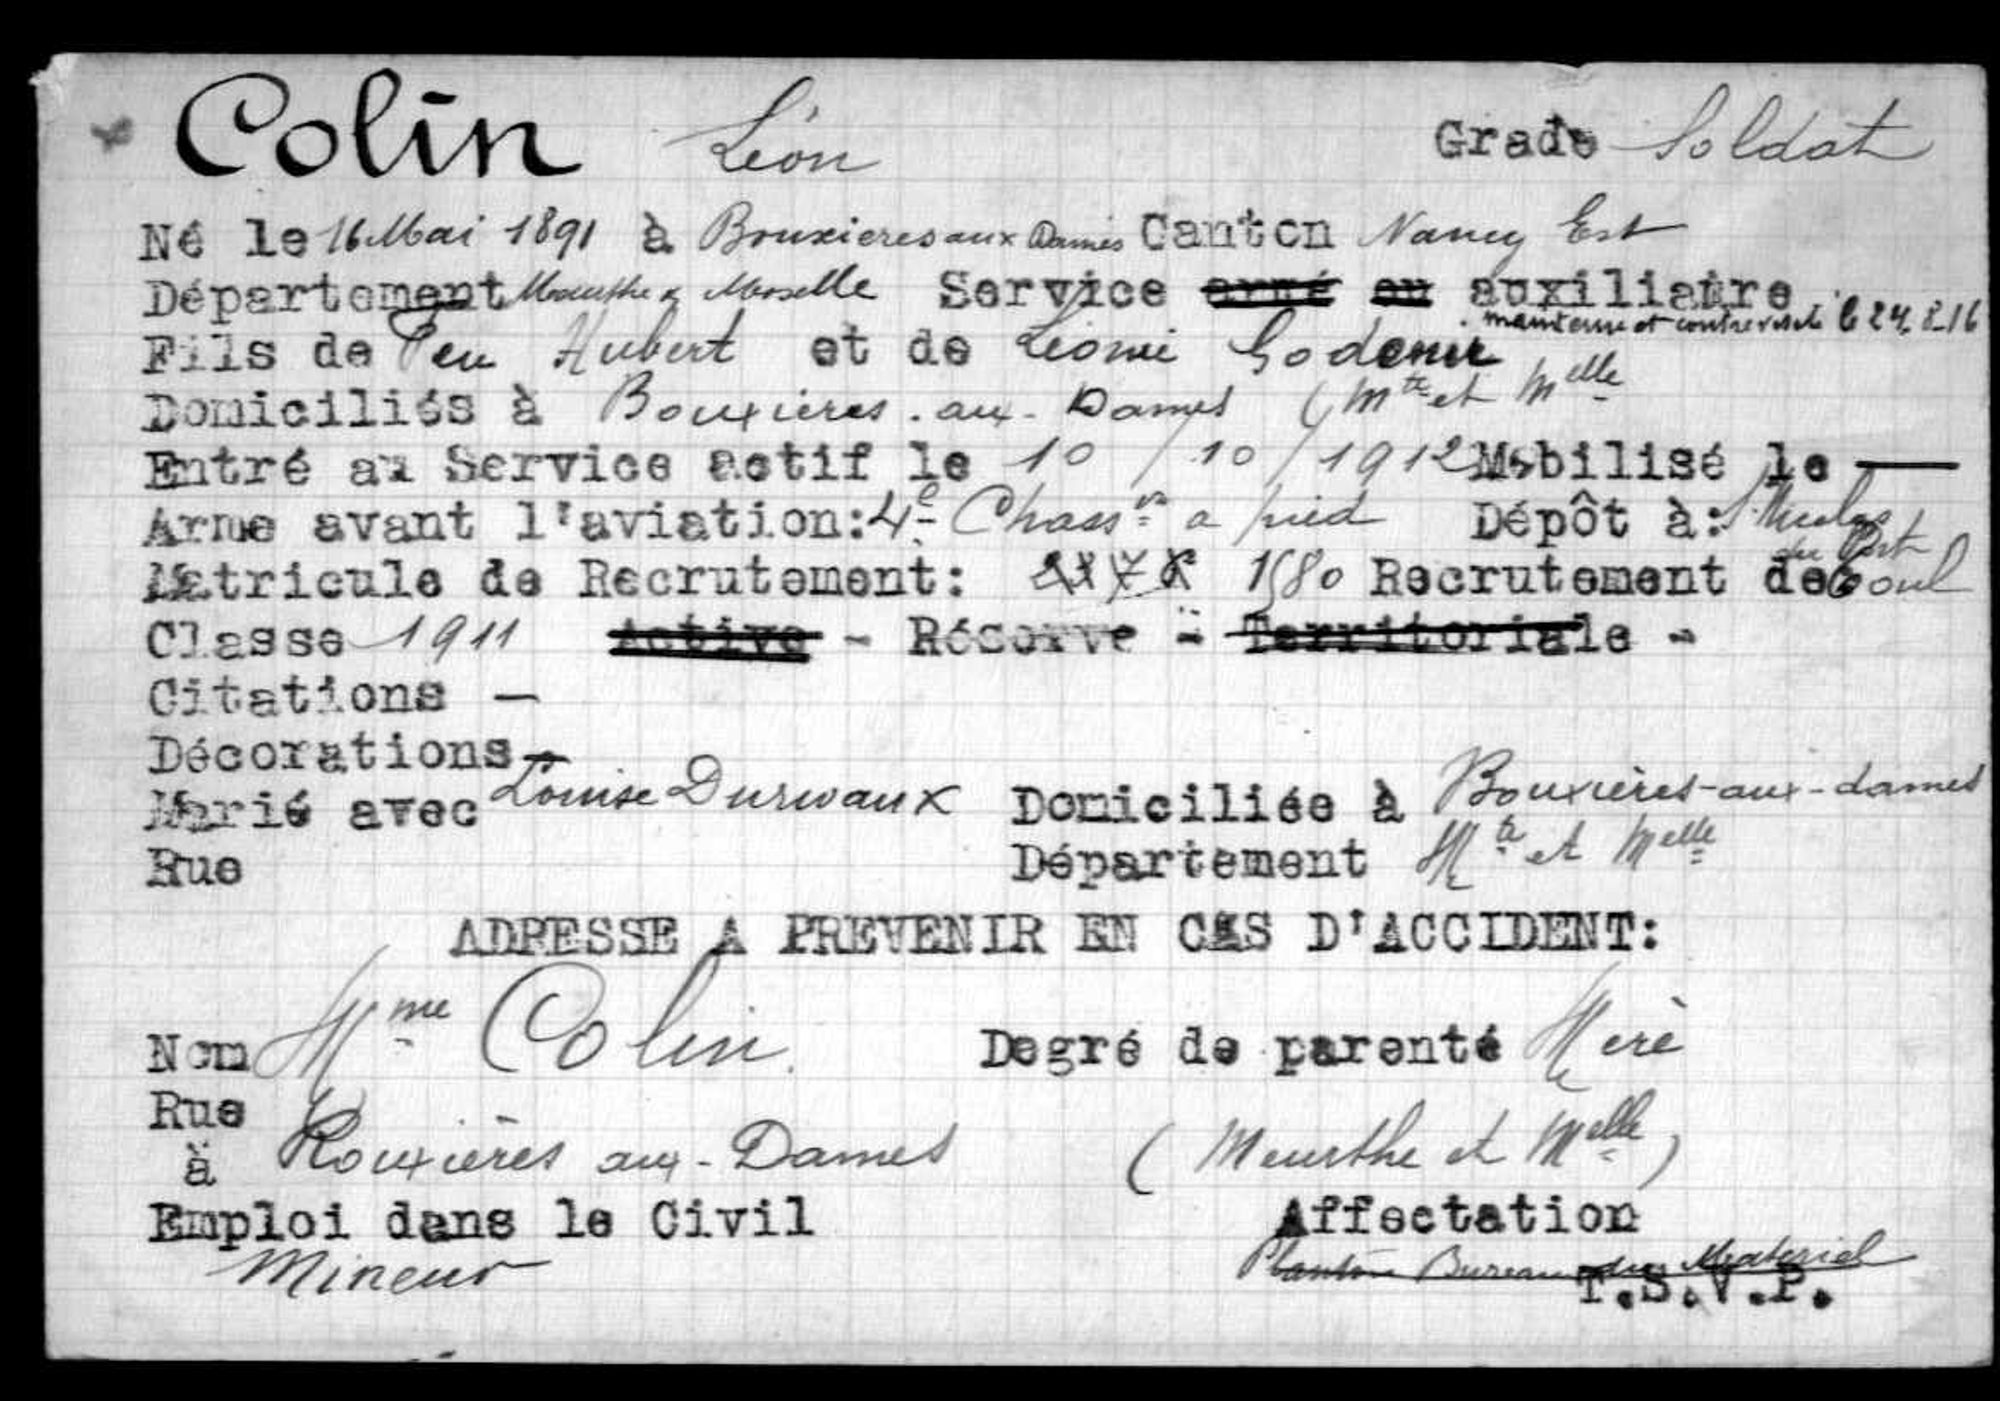 Colin Léon Grade Soldat
Né le 16 Mai 1891 à Bouxieres aux Dames Canton Nancy Est
Département Meurthe & Moselle Service armé ou auxiliaire
maintenu et contre visite le 24.8.16
Fils de Feu Hubert et de Léonie
Domiciliés à Bouxières-aux-Dames (Mthe et Melle
Entré au Service actif le 10/10/1912 Mobilisé le —
Arme avant l'aviation: 4e Chassrs a pied Dépôt à: St Nicolas
du Port
Matricule de Recrutement: 1580 Recrutement de Toul
Classe 1911 Active - Réserve - Territoriale -
Citations —
Décorations —
Marié avec Louise Durwaux Domiciliée à Bouxières-aux-dames
Rue Département Mthe et Melle
ADRESSE A PREVENIR EN CAS D'ACCIDENT:
Nom Mme Colin Degré de parenté Merè
Rue
à Bouxières aux-Dames (Meurthe et Melle)
Emploi dans le Civil Affectation
Mineur Planton Bureau du Materiel
T.S.V.P.